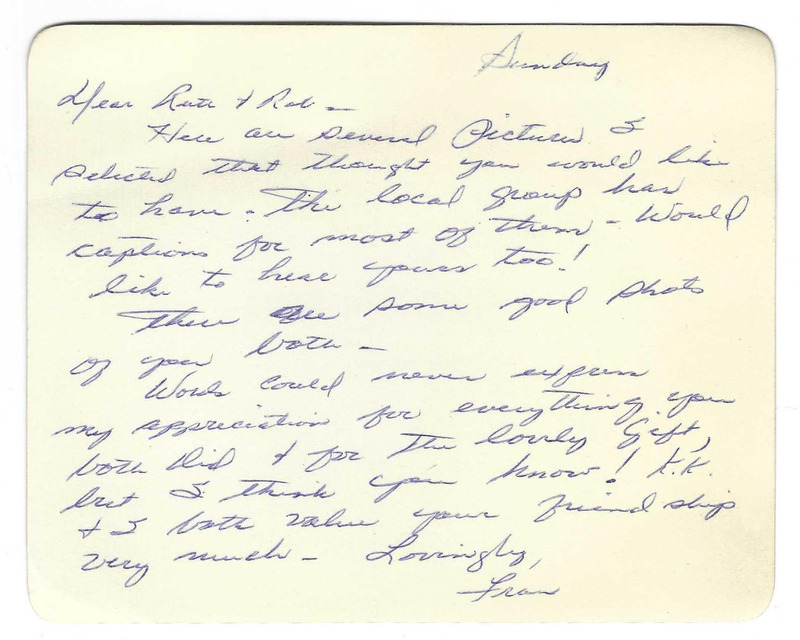 Sunday
Dear Ruth & Rob -
Here are several Pictures I
selected that thought you would like
to have - The local group has
captions for most of them - Would
like to hear yours too!
There are some good shots
of you both -
Words could never express
my appreciation for everything you
both did & for the lovely Gift,
but I think you know! K.K.
& I both value your friendship
very much - Lovingly,
Fran